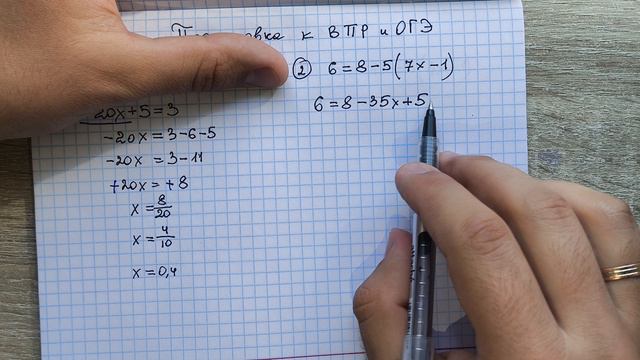 к ВПР и ОГЭ
20x+5=3
-20x = 3-6-5
-20x = 3-11
+20x = +8
x = 8/20
x = 4/10
x = 0,4
② 6=8-5(7x-1)
6=8-35x+5